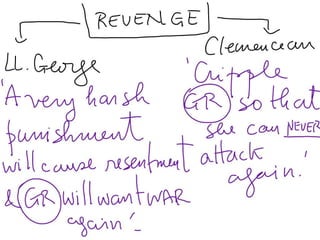 REVENGE
Ll. George
'A very harsh
punishment
will cause resentment
& GR will want WAR
again'
Clemenceau
'Cripple
GR so that
she can NEVER
attack
again.'